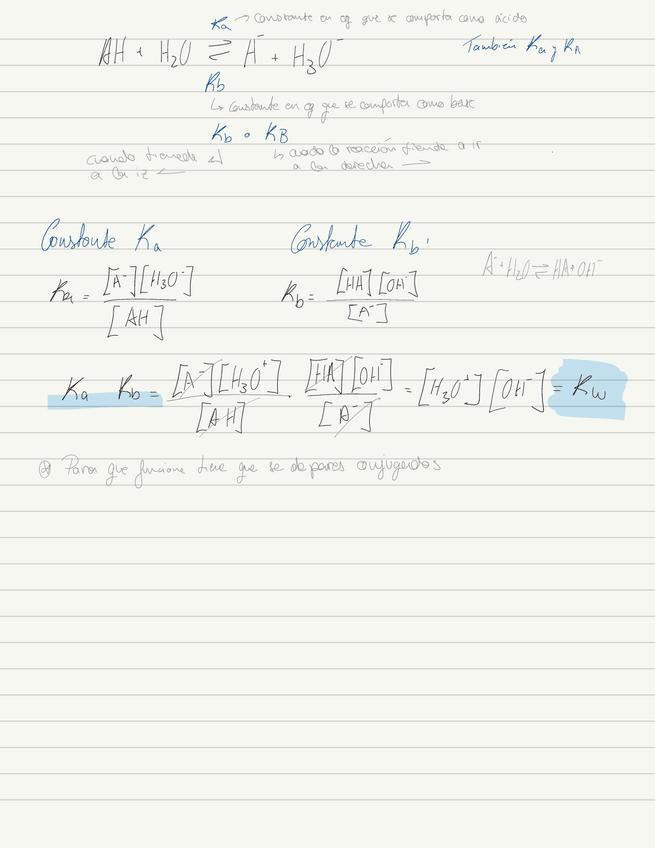 Ka → Constante en eq que se comporta como ácido
AH + H₂O ⇌ A⁻ + H₃O⁻
También Ka y KA
Kb
↳ Constante en eq que se comporta como base
Kb o KB
cuando
a la iz ←
↳ cuado la reacción tiende a ir
a la derecha →
Constante Ka
Constante Kb
Ka = [A⁻][H₃O⁻] / [AH]
Kb = [HA][OH⁻] / [A⁻]
A⁻ + H₂O ⇌ HA + OH⁻
Ka Kb = [A⁻][H₃O⁺] / [AH] · [HA][OH⁻] / [A⁻] = [H₃O⁺][OH⁻] = Kw
Para que funcione tiene que se de pares conjugados